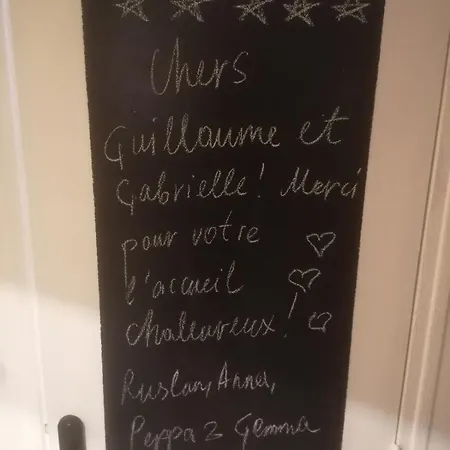 Chers
Guillaume et
Gabrielle! Merci
pour votre
l'accueil
chaleureux!
Ruslan, Anna,
Peppa & Gemma